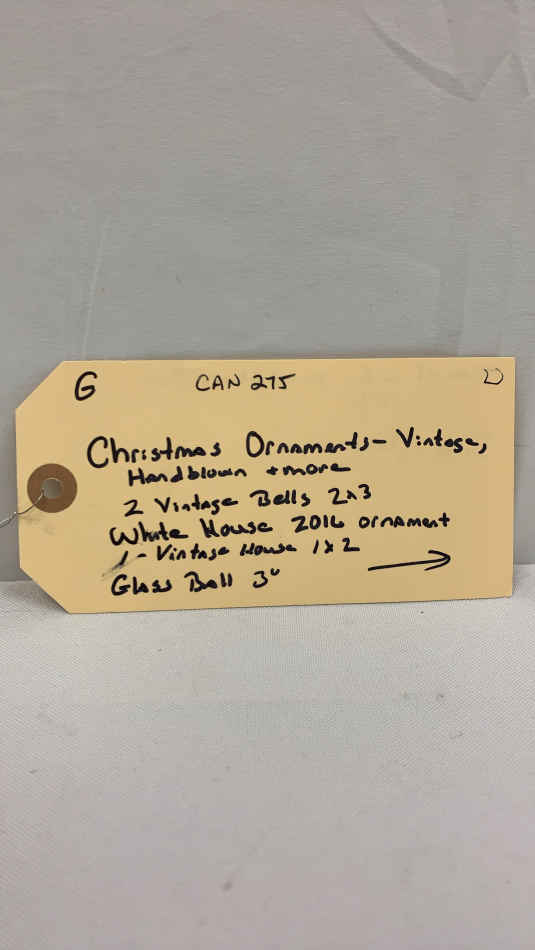 G CAN 275 D
Christmas Ornaments - Vintage,
Handblown + more
2 Vintage Bells 2x3
White House 2016 ornament
1 - Vintage House 1x2
Glass Ball 3"